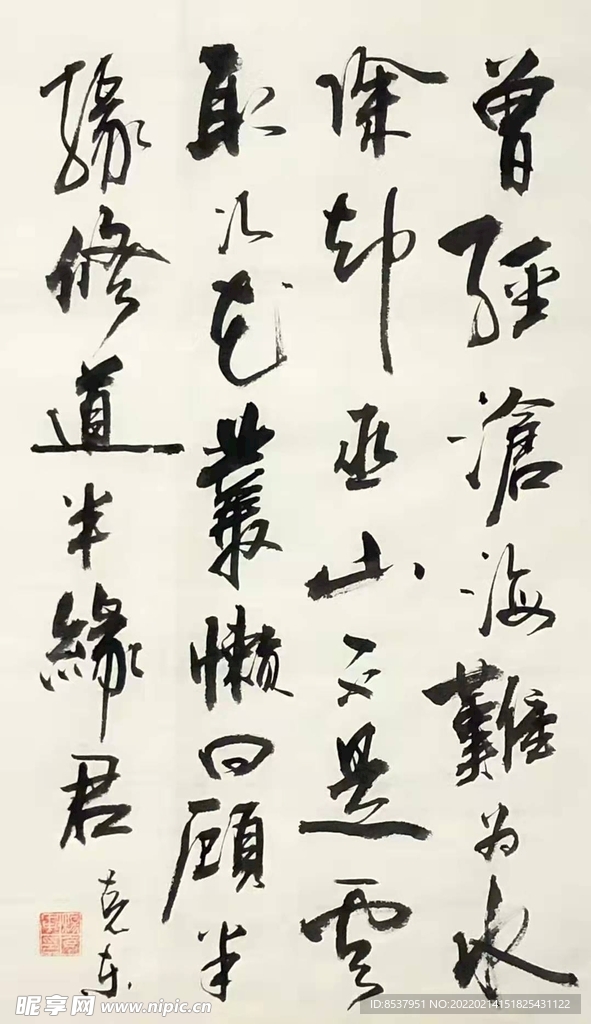 曾經滄海難為水
除却巫山不是雲
取次花叢懶回顧半
緣修道半緣君
昵享网 www.nipic.cn
ID:8537951 NO:20220214151825431122